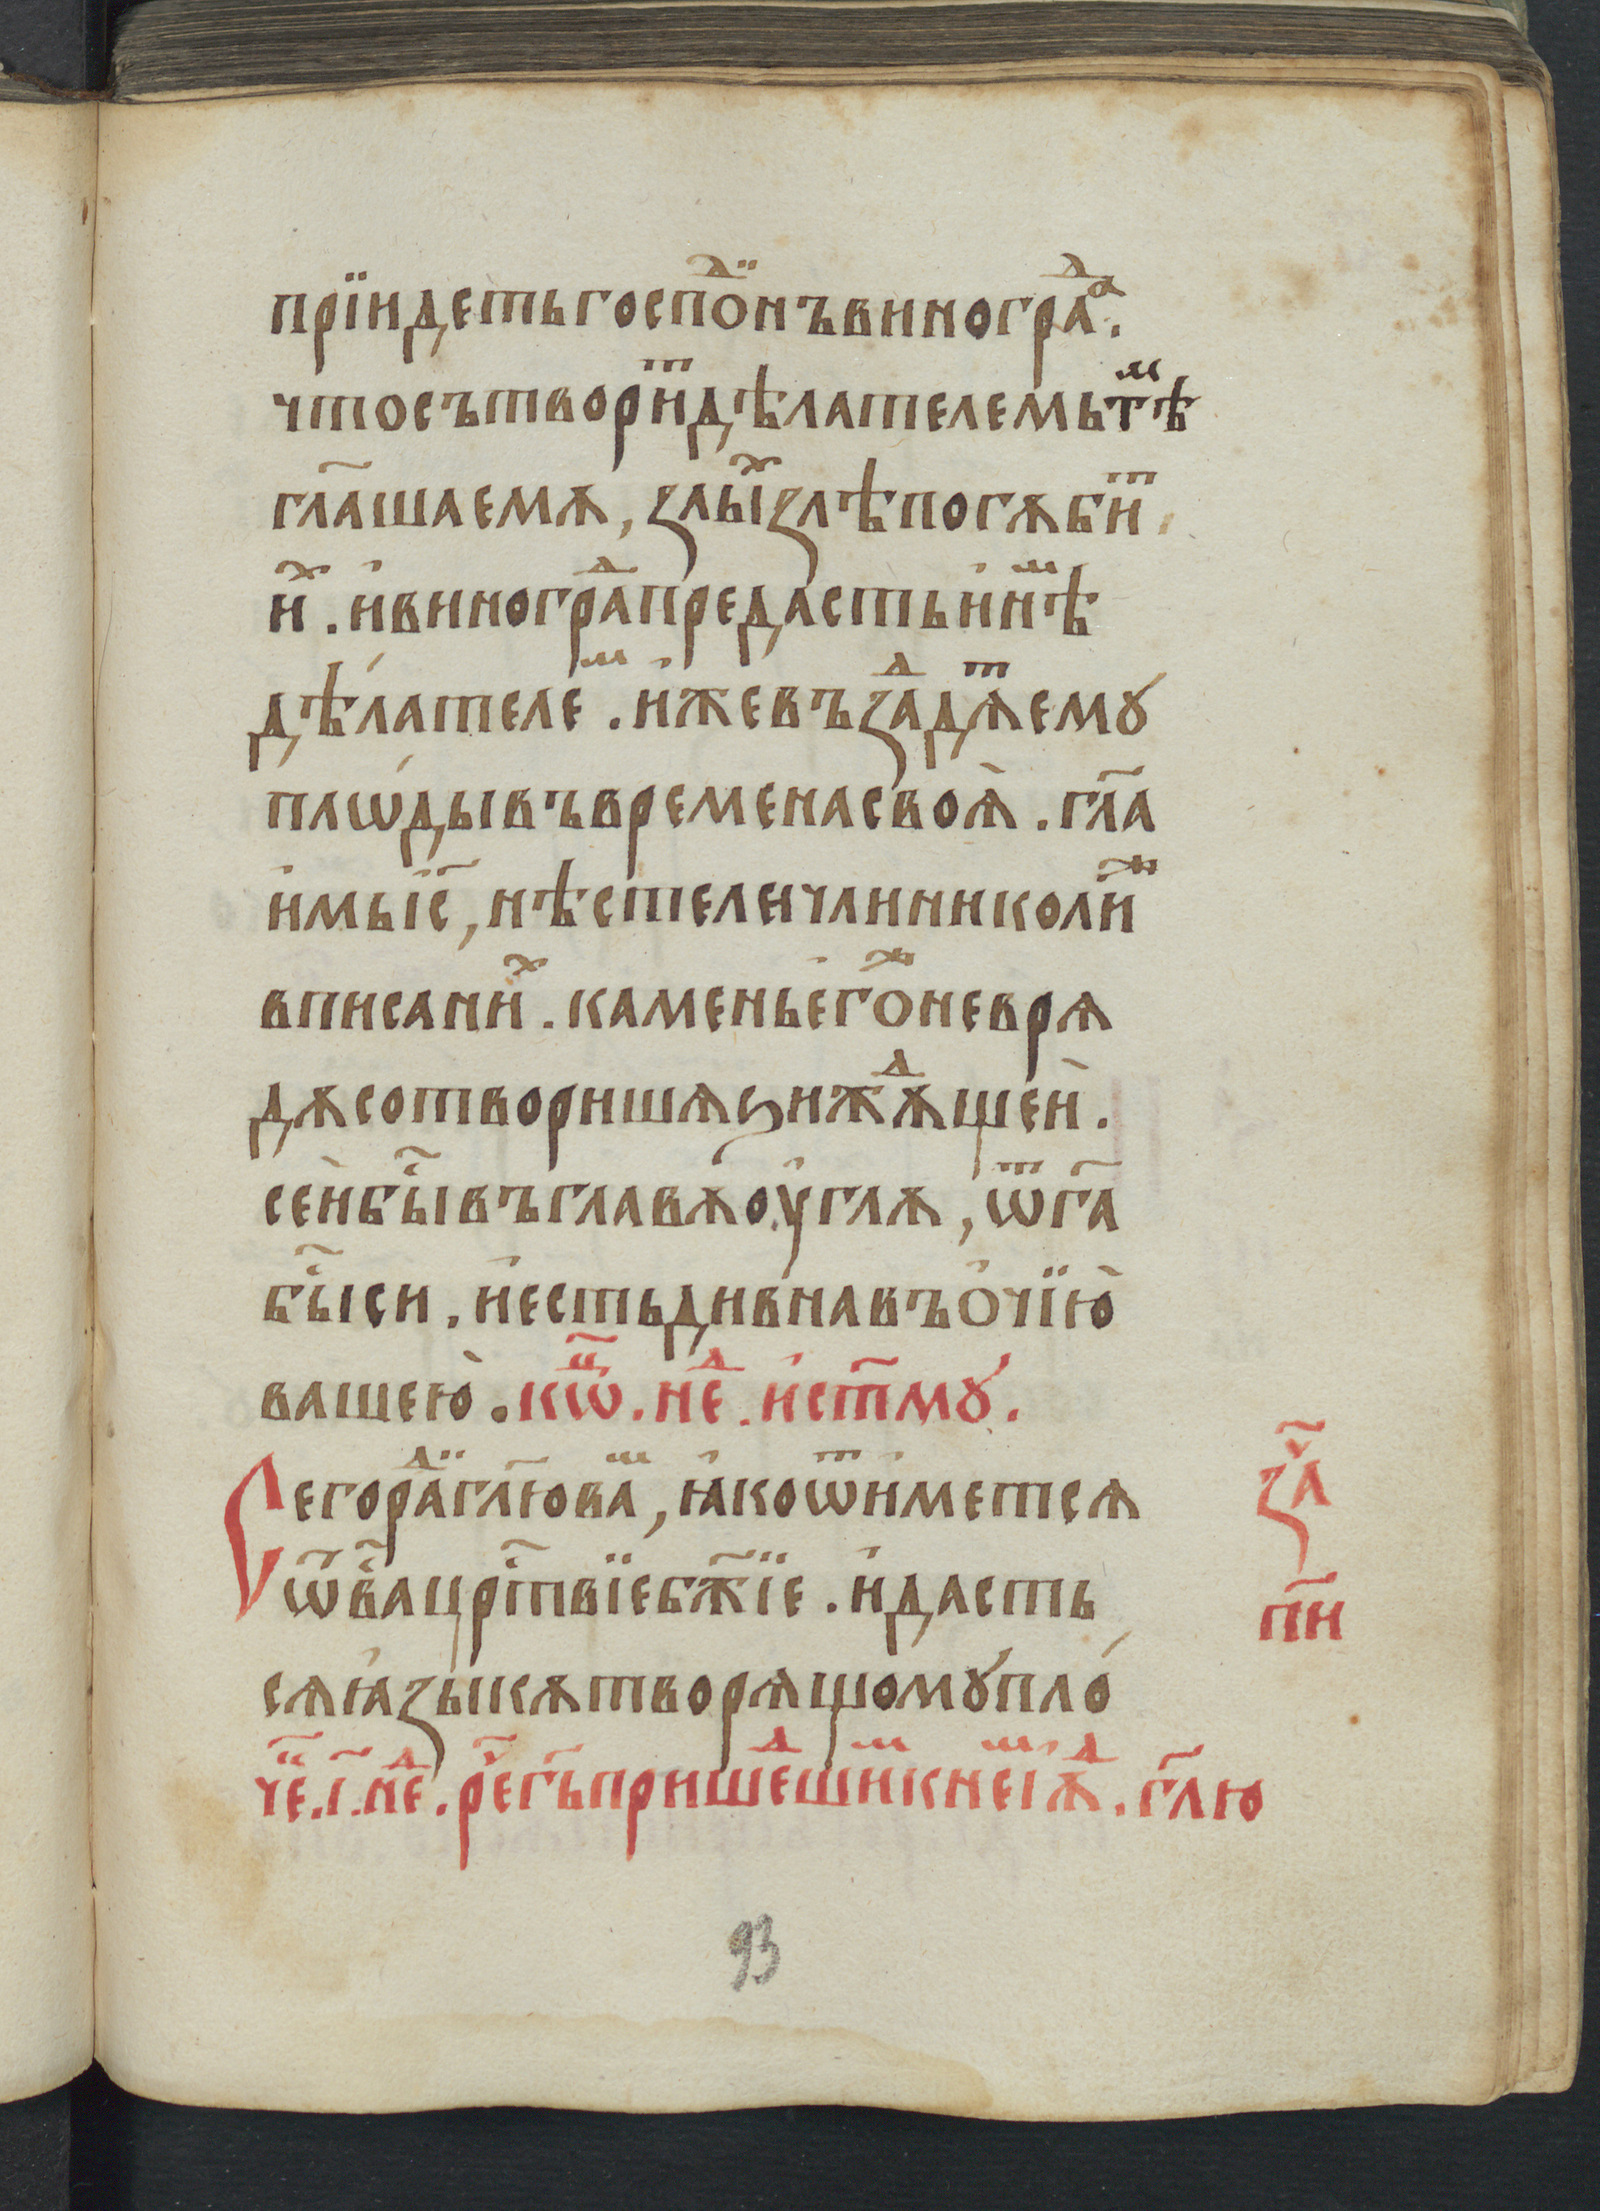 прїидеть госпⷣои҃нъ виногрⷣаа .
что сътворⷮи дѣлателемь тⷨѣ
гл҃аша емѫ , ꙁлыⷯ ꙁлѣ погѫбиⷮ .
иⷯ . и виногрⷣа предасть инⷨѣ
дѣлателеⷨ . иже въꙁⷣадѧⷮ емꙋ
плѡды въ времена своѧ̀ . гл҃а
имь іс҃ , нѣсте ли чли николиⷤ
в писаниⷯ . камень егоⷤ не врѧ
дѫ сотворишѧ ѕижⷣѫщеи .
сеи бы҃ въ главѫ оуглѫ , ѿ га҃
бы҃ си . и есть дивна въ очїю̀
вашею̀ . кѡⷩ҇ . неⷣ . и ст҃мꙋ .
Сего рⷣаи гл҃ю ваⷨ , ꙗко ѿиметсѧ
ѿ ва҃ црⷭ҇твїе бж҃їе . и дасть
сѧ ꙗꙁыкѫ творѧщомꙋ пло́
чеⷮ . і҃ . неⷣ . реⷱ҇ гь҃ пришеⷣшиⷨ к неⷨ іюⷣѧ . гл҃ю
ꙁаⷱ҇
пи҃
93